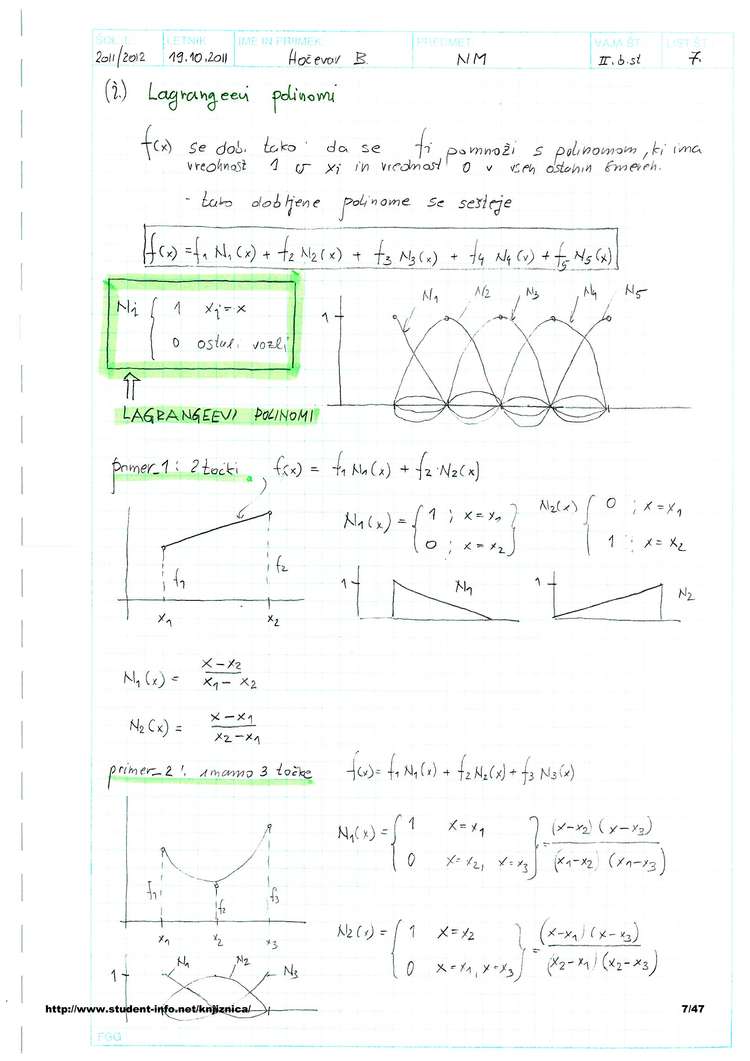 ŠOL. L. LETNIK IME IN PRIIMEK PREDMET VAJA ŠT. LIST ŠT.
2011/2012 19.10.2011 Hočevar B. NM II.b.st 7.
(i.) Lagrangeevi polinomi
f(x) se dob. tako da se fi pomnoži s polinomom, ki ima
vrednost 1 v xi in vrednost 0 v vseh ostalih
- tako dobljene polinome se sešteje
f(x) = f1 N1(x) + f2 N2(x) + f3 N3(x) + f4 N4(x) + f5 N5(x)
Ni { 1 xi = x
0 ostal. vozli
1 N1 N2 N3 N4 N5
LAGRANGEEVI POLINOMI
primer_1: 2 točki f(x) = f1 N1(x) + f2 · N2(x)
N1(x) = { 1 ; x = x1 N2(x) { 0 ; x = x1
0 ; x = x2 } 1 ; x = x2
f1 f2
x1 x2
1 N1 1 N2
N1(x) = (x-x2)/(x1-x2)
N2(x) = (x-x1)/(x2-x1)
primer_2: imamo 3 točke f(x) = f1 N1(x) + f2 N2(x) + f3 N3(x)
N1(x) = { 1 x = x1
0 x = x2, x = x3 } = (x-x2)(x-x3)/(x1-x2)(x1-x3)
f1 f2 f3
x1 x2 x3
N2(x) = { 1 x = x2
0 x = x1, x = x3 } = (x-x1)(x-x3)/(x2-x1)(x2-x3)
1 N1 N2 N3
http://www.student-info.net/knjiznica/ 7/47
FGG